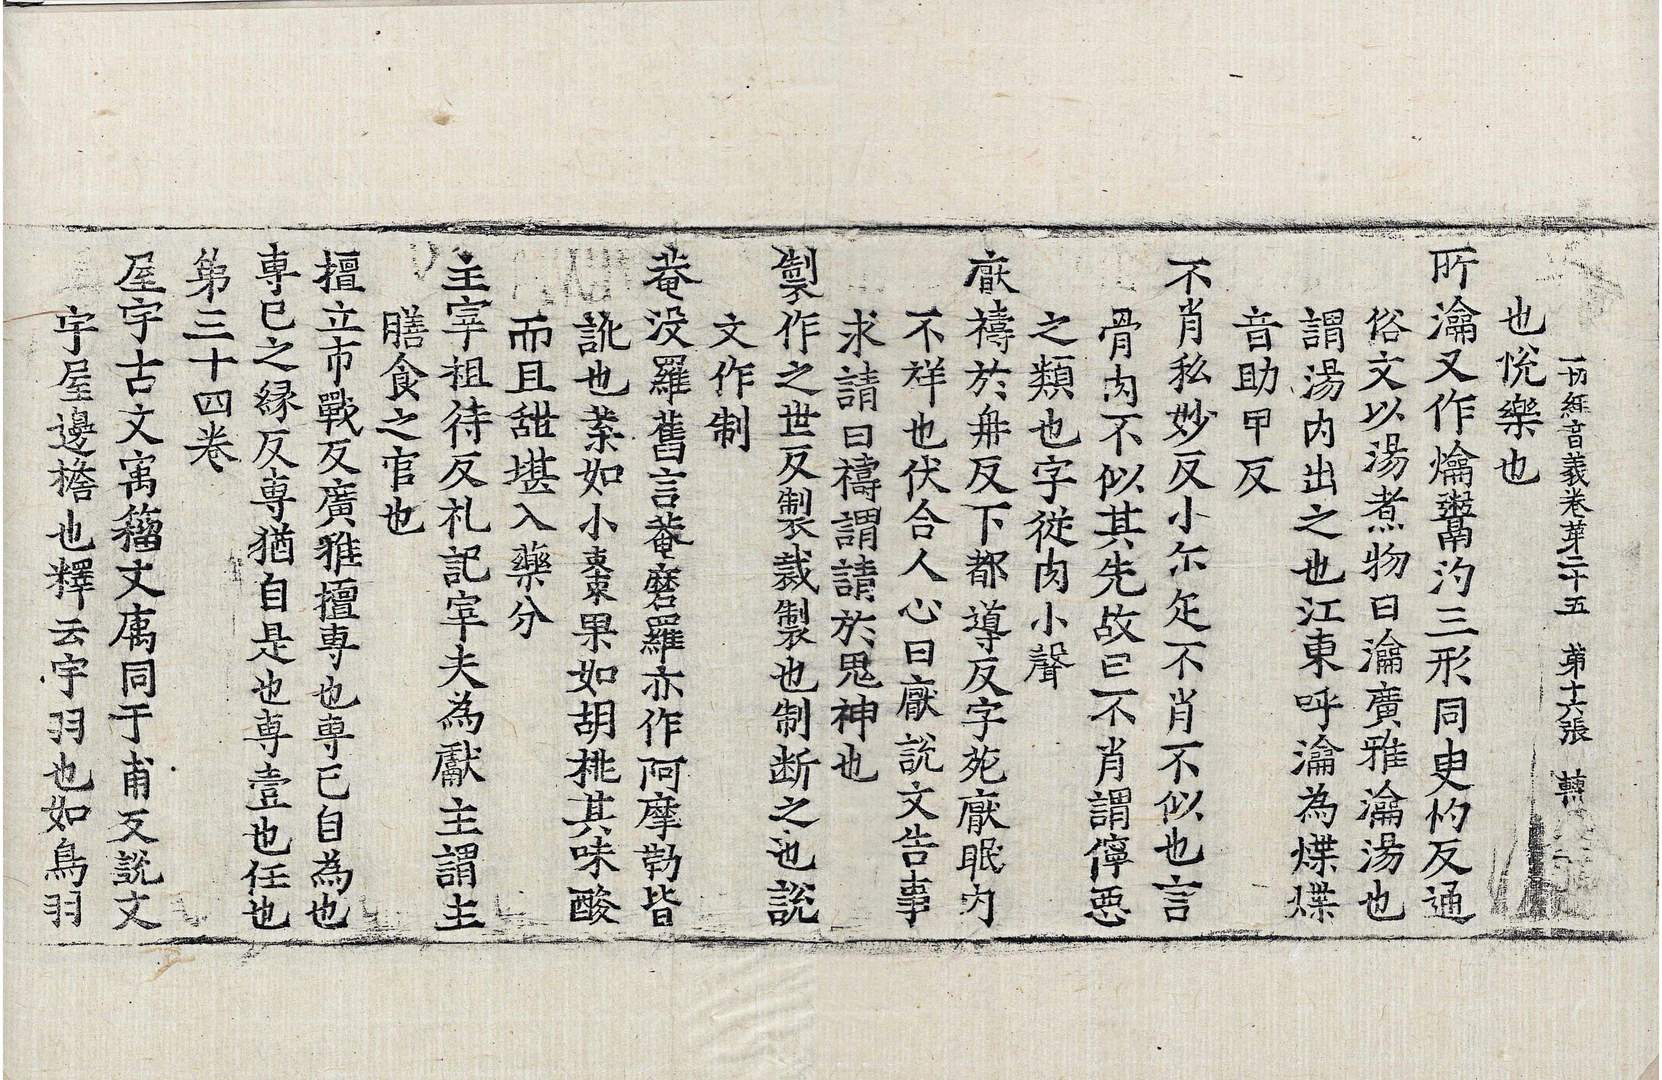 一切經音義卷第二十五　第十六張　轉
也悅樂也
所瀹又作爚鬻汋三形同史灼反通
俗文以湯煮物曰瀹廣雅瀹湯也
謂湯內出之也江東呼瀹為煠煠
音助甲反
不肖私妙反小尒疋不肖不似也言
骨肉不似其先故曰不肖謂儜惡
之類也字從肉小聲
厭禱於冉反下都導反字苑厭眠內
不祥也伏合人心曰厭說文告事
求請曰禱謂請於鬼神也
製作之世反製裁製也制断之也說
文作制
菴没羅舊言菴磨羅亦作阿摩勒皆
訛也葉如小棗果如胡桃其味酸
而且甜堪入藥分
主宰祖待反礼記宰夫為獻主謂主
膳食之官也
擅立市戰反廣雅擅專也專己自為也
專已之緣反專猶自是也專壹也任也
第三十四卷
屋宇古文㝢籀文庽同于甫反說文
宇屋邊檐也釋云宇羽也如鳥羽